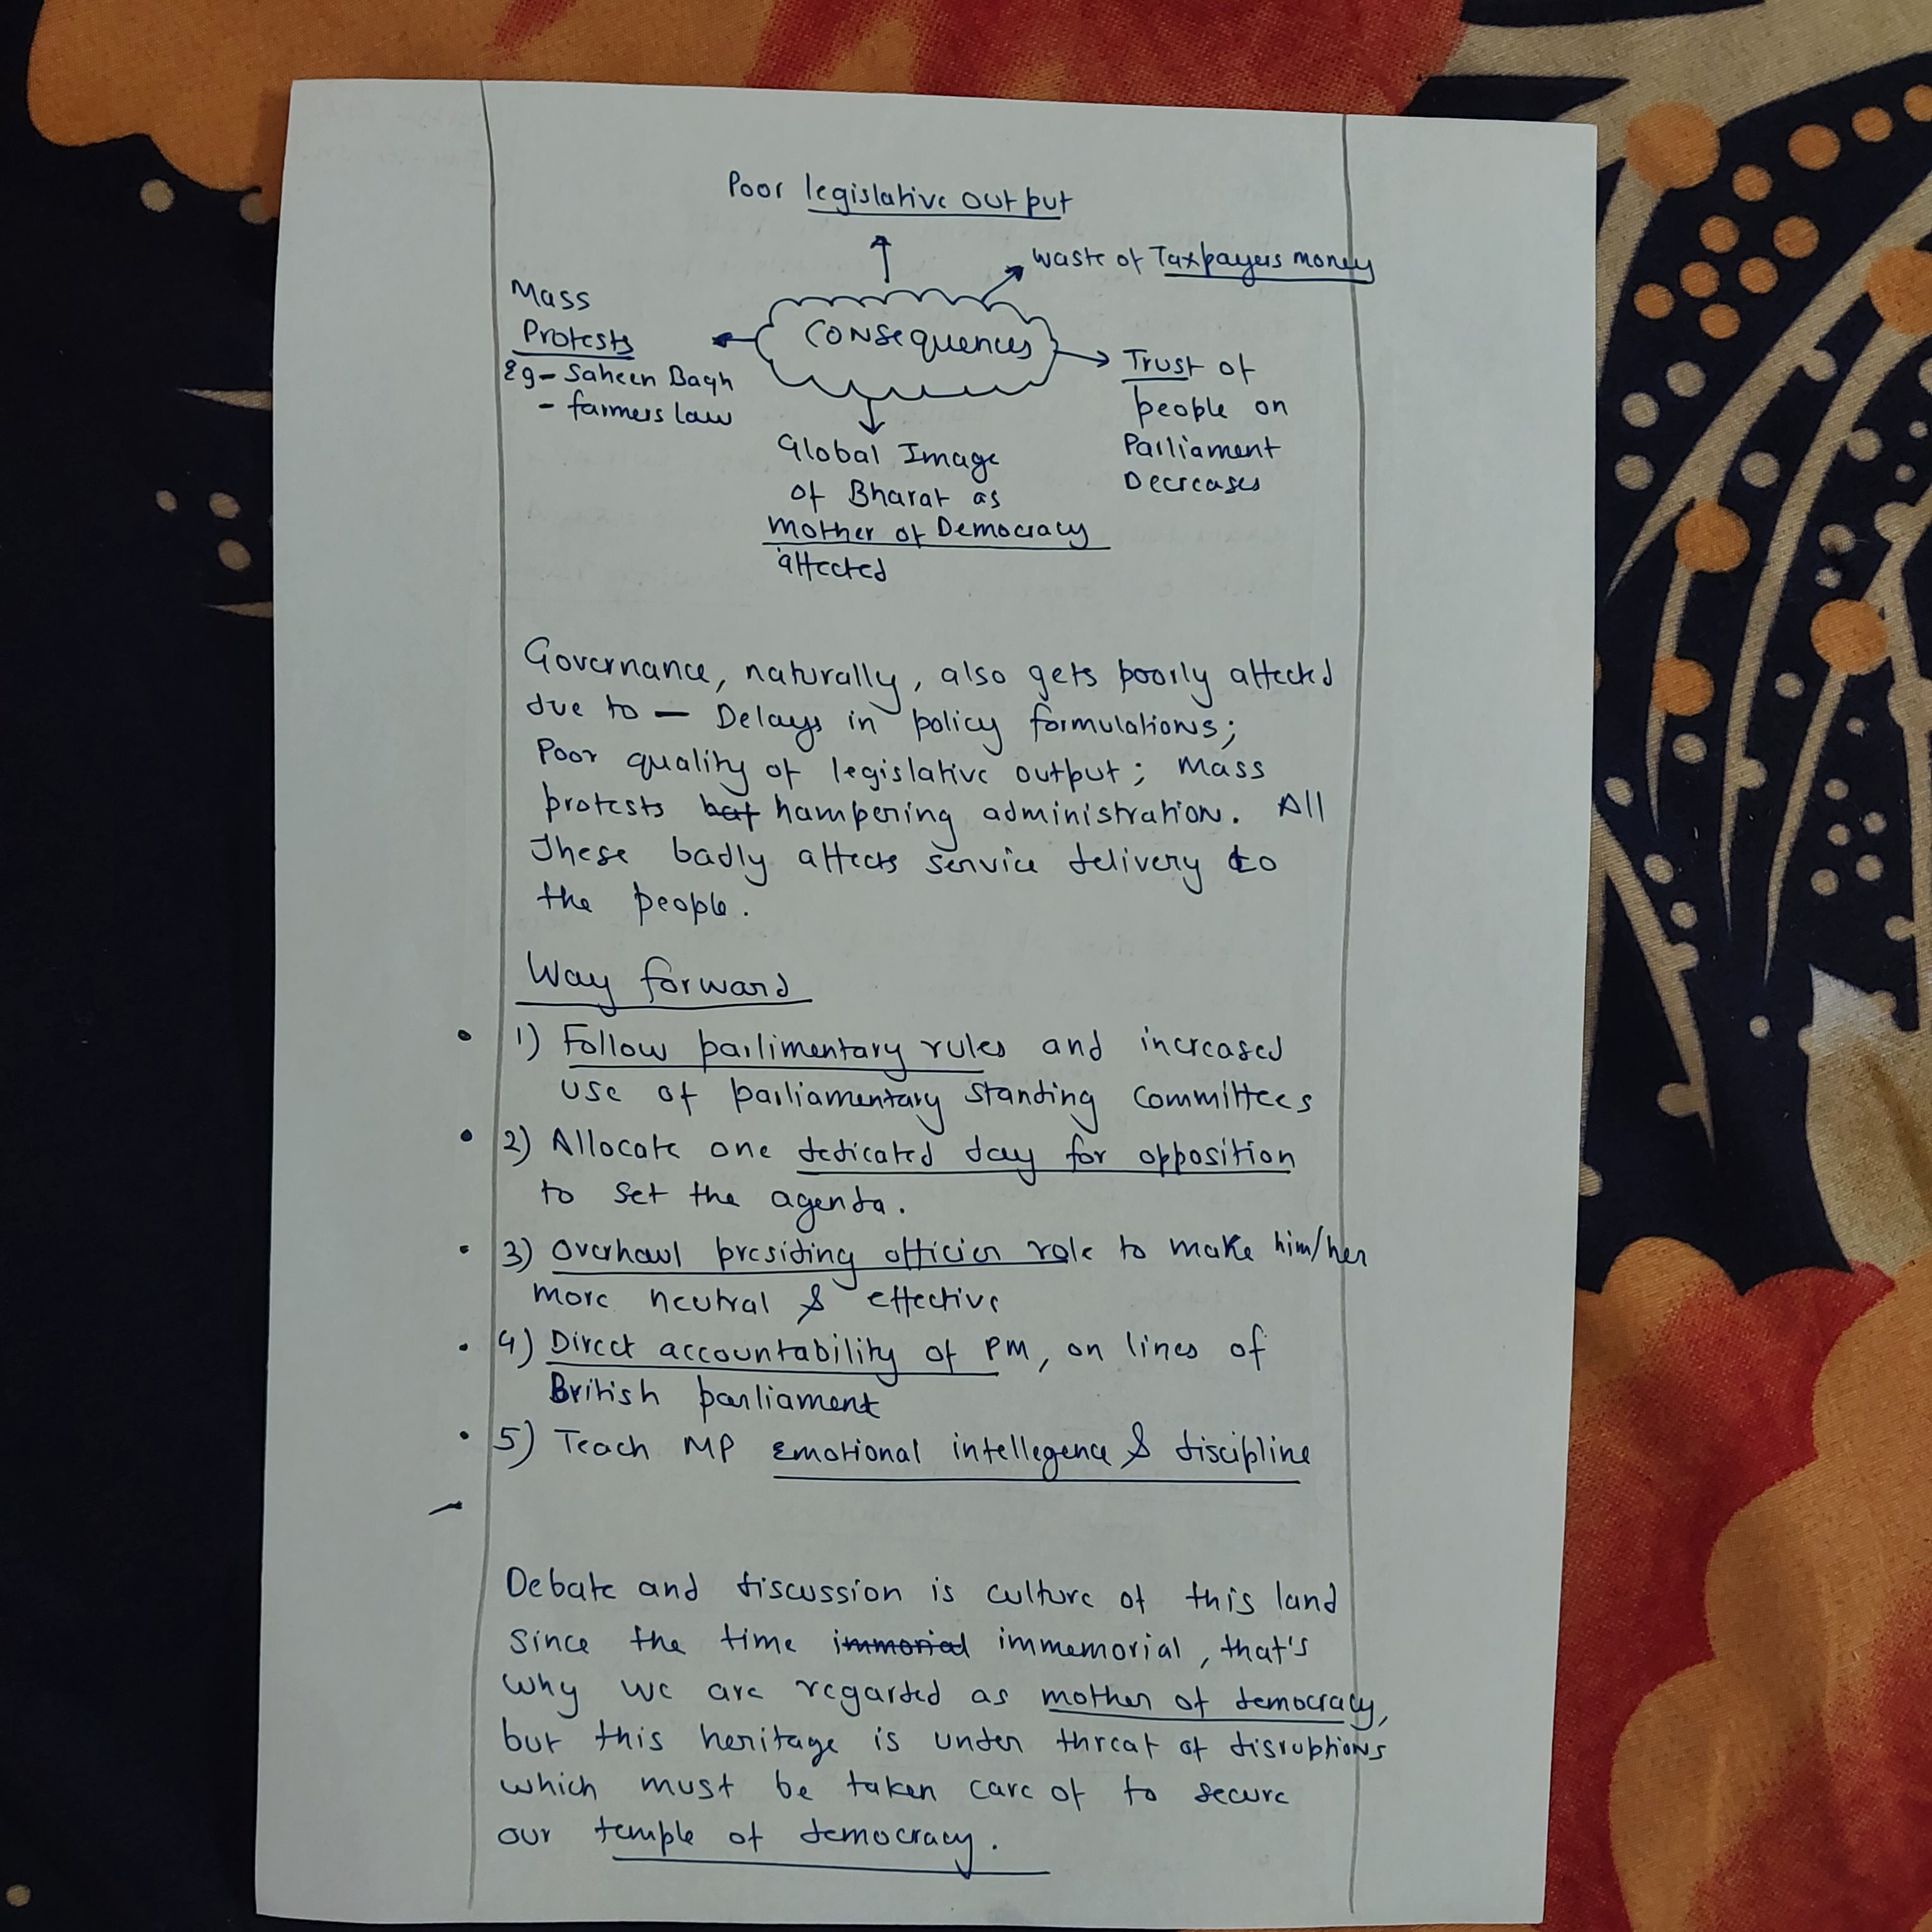 Poor legislative output
waste of Taxpayers money
Mass
Protests
Eg- Saheen Bagh
- farmers law
Consequences
Trust of
people on
Parliament
Decreases
Global Image
of Bharat as
Mother of Democracy
affected
Governance, naturally, also gets poorly affected
due to - Delays in policy formulations;
Poor quality of legislative output; Mass
protests hampering administration. All
These badly affects service delivery to
the people.
Way forward
• 1) Follow parlimentary rules and increased
use of parliamentary standing committees
• 2) Allocate one dedicated day for opposition
to set the agenda.
• 3) Overhawl presiding officier role to make him/her
more neutral & effective
• 4) Direct accountability of PM, on lines of
British parliament
• 5) Teach MP Emotional intellegence & discipline
Debate and discussion is culture of this land
since the time immorial immemorial, that's
why we are regarded as mother of democracy,
but this heritage is under threat of disruptions
which must be taken care of to secure
our temple of democracy.